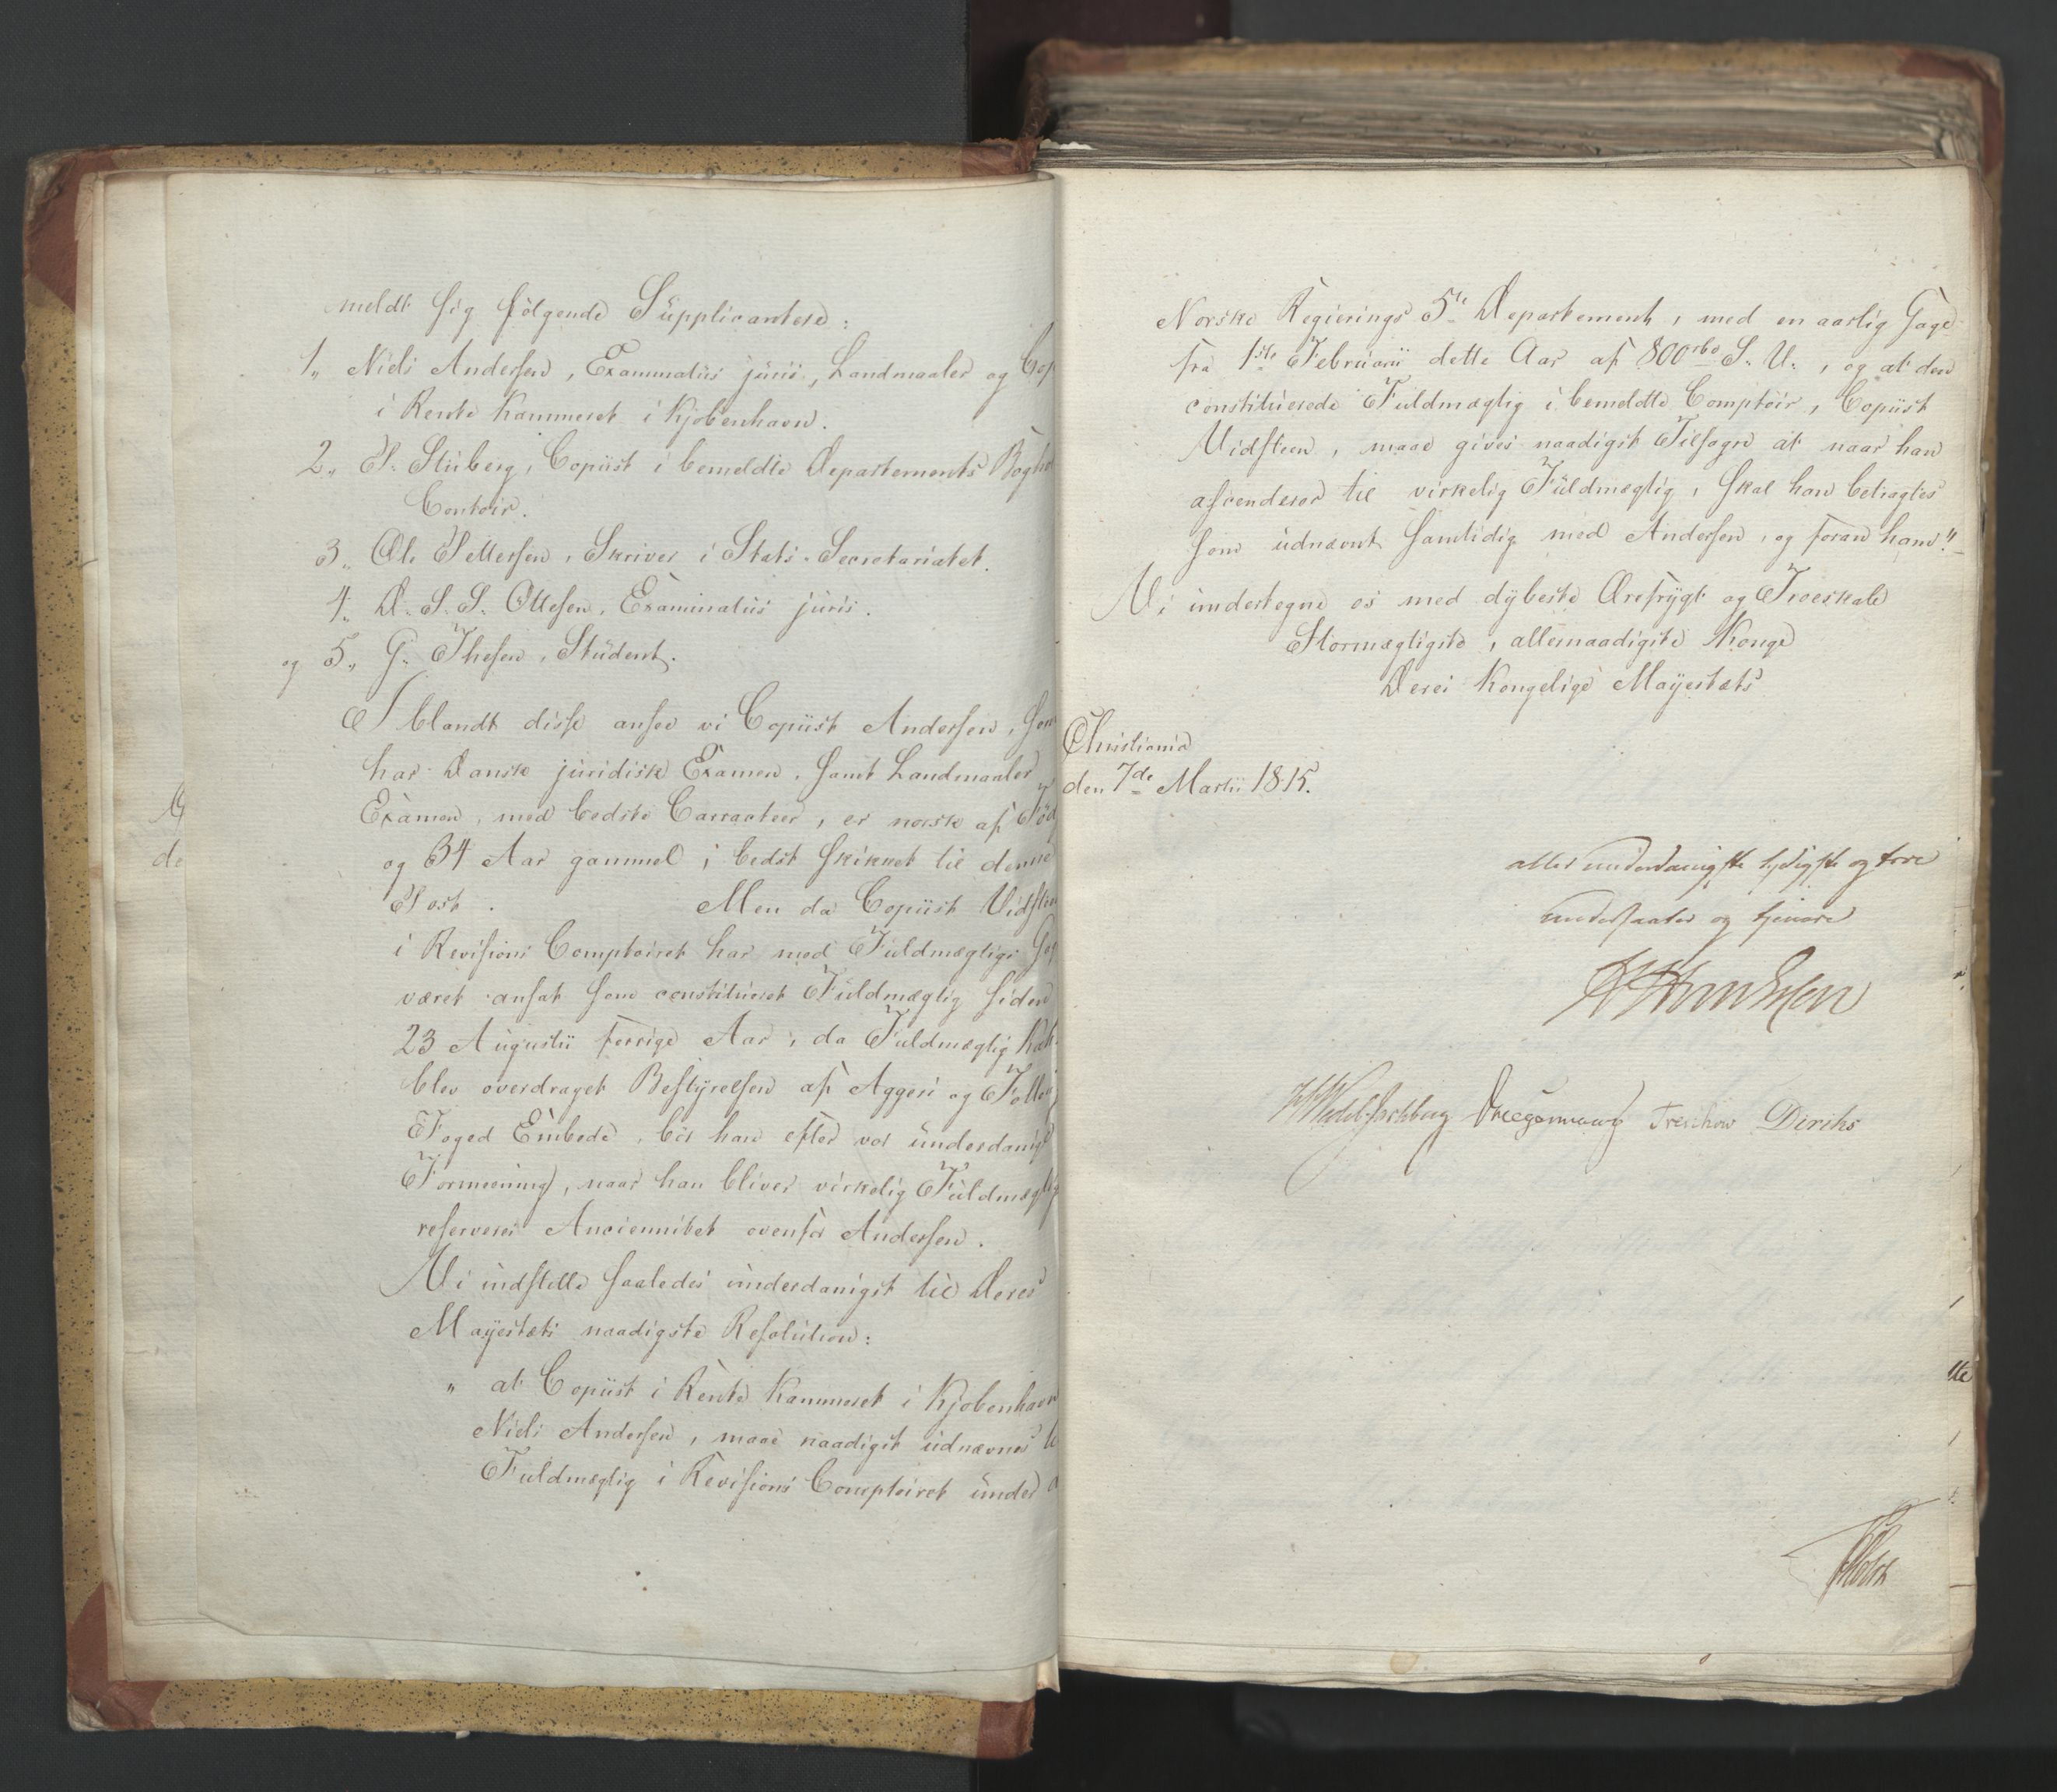 meldt sig følgende Supplicantere:
1,, Niels Andersen, Examinatus juris, Landmaaler og Cop
i Rente Kammeret i Kjøbenhavn.
2,, P. Stüberg, Copiist i bemeldte Departements Bogh
Contoir.
3,, Ole Pettersen, Skriver i Stats-Secretariatet.
4,, D. S. S. Ottesen, Examinatus juris.
og 5,, G. Thesen, Student.
I blandt disse ansee vi Copiist Andersen, som
har Dansk juridisk Examen, samt Landmaaler
Examen, med bedste Carracteer, er norsk af Fød
og 34 Aar gammel, bedst skikket til denne
Post. Men da Copiist Vidsten
i Revisions Comptoiret har med Fuldmægtigs Gag
været ansat som constitueret Fuldmægtig siden
23 Augustii forrige Aar, da Fuldmægtig
blev overdraget Bestyrelsen af Aggers og Follo
Foged Embede, bør han efter vor underdanig
Formeening, naar han bliver virkelig Fuldmægtig
reserveres Anciennitet ovenfor Andersen.
Vi indstille saaledes underdanigst til Deres
Mayestæts naadigste Resolution:
" at Copiist i Rente Kammeret i Kjøbenhavn
Niels Andersen, maae naadigst udnævnes t
Fuldmægtig i Revisions Comptoiret under d
Norske Regierings 5te Departement, med en aarlig Gage
fra 1ste Februarii dette Aar af 800 rbd S. V., og at den
constituerede Fuldmægtig i bemeldte Comptoir, Copiist
Vidsteen, maae gives naadigst Tilsagn at naar han
ascenderer til virkelig Fuldmægtig, skal han betragtes
som udnævnt samtidig med Andersen, og foran ham."
Vi undertegne os med dybeste Ærefrygt og Troeskab
Stormægtigste, allernaadigste Konge
Deres Kongelige Mayestæts
Christiania
den 7de Martii 1815.
allerunderdanigste lydigste og troe
undersaatter og tjenere
Treschow Diriks
Holst